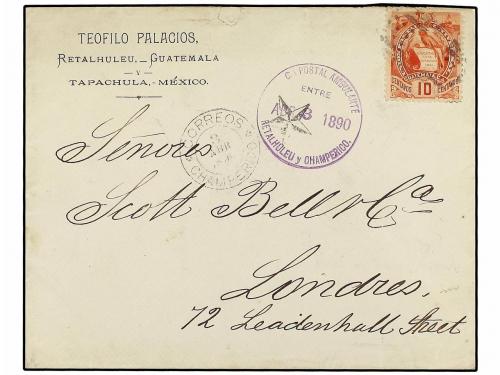 TEOFILO PALACIOS,
RETALHULEU,_GUATEMALA
Y
TAPACHULA,-MÉXICO.
POSTAL AMBULANTE
ENTRE
1890
RETALHULEU y CHAMPERICO.
CORREOS
ABR
CHAMPERICO
GUATEMALA
CENTAVOS
10
Señores
Scott Bell & Ca
Londres,
72 Leadenhall Street